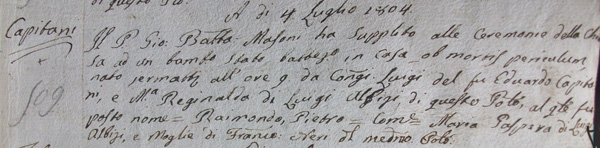 di questo Plo.
A di 4 Luglio 1804.
Capitani
Il P. Gio: Batta: Masoni ha supplito alle Ceremonie della Chie
sa ad un bambo stato battezo in casa ob mortis periculum
nato jermattj all'ore 9. da Congi. Luigi del fu Eduardo Capita
ni, e Ma. Reginalda di Luigi Albizi, di questo Polo, al qle fu
posto nome = Raimondo, Pietro = Come. Maria Gaspera di Luigi
Albizi, e Moglie di Franco: Neri di medmo Polo.
509